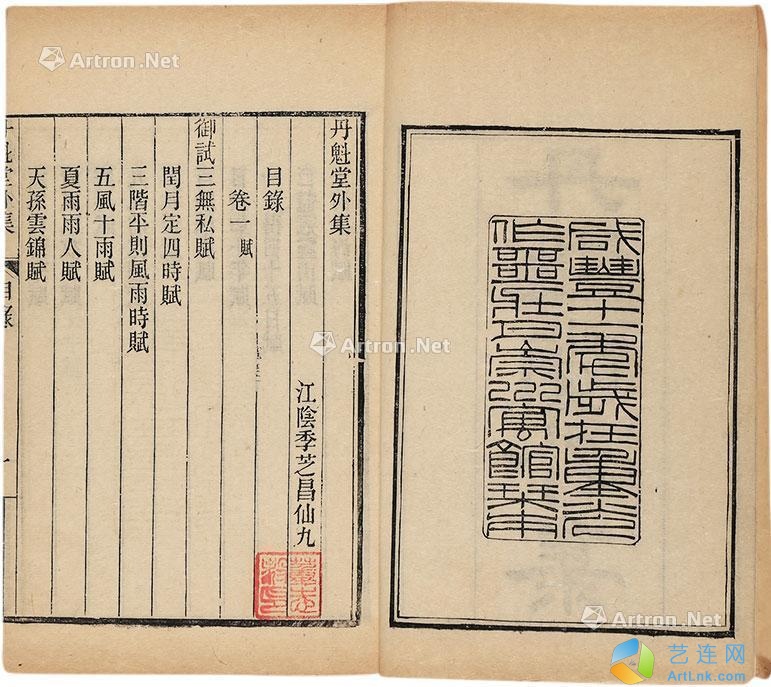 咸豐十一年歲在重光
作噩壯月崇川寓館栞
丹魁堂外集
江陰季芝昌仙九
目錄
卷一 賦
御試三無私賦
閏月定四時賦
三階平則風雨時賦
五風十雨賦
夏雨雨人賦
天孫雲錦賦
魁堂外集 目錄 一
Artron.Net
Artron.Net
Artron.Net
Artron.Net
艺连网
ArtLnk.com